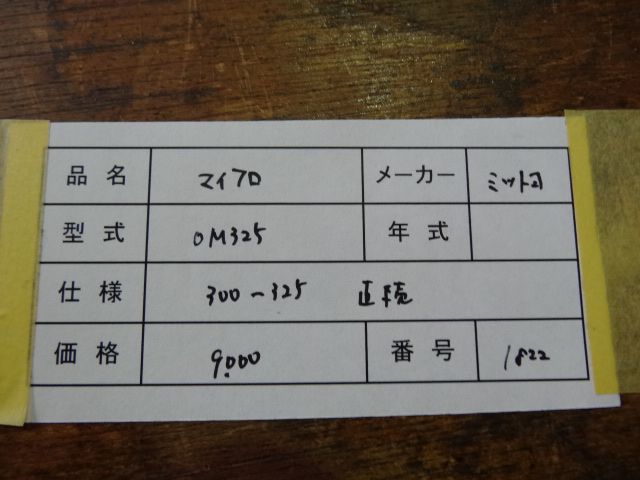 品名 マイクロ メーカー ミツトヨ
型式 OM325 年式
仕様 300-325 直読
価格 9.000 番号 1822